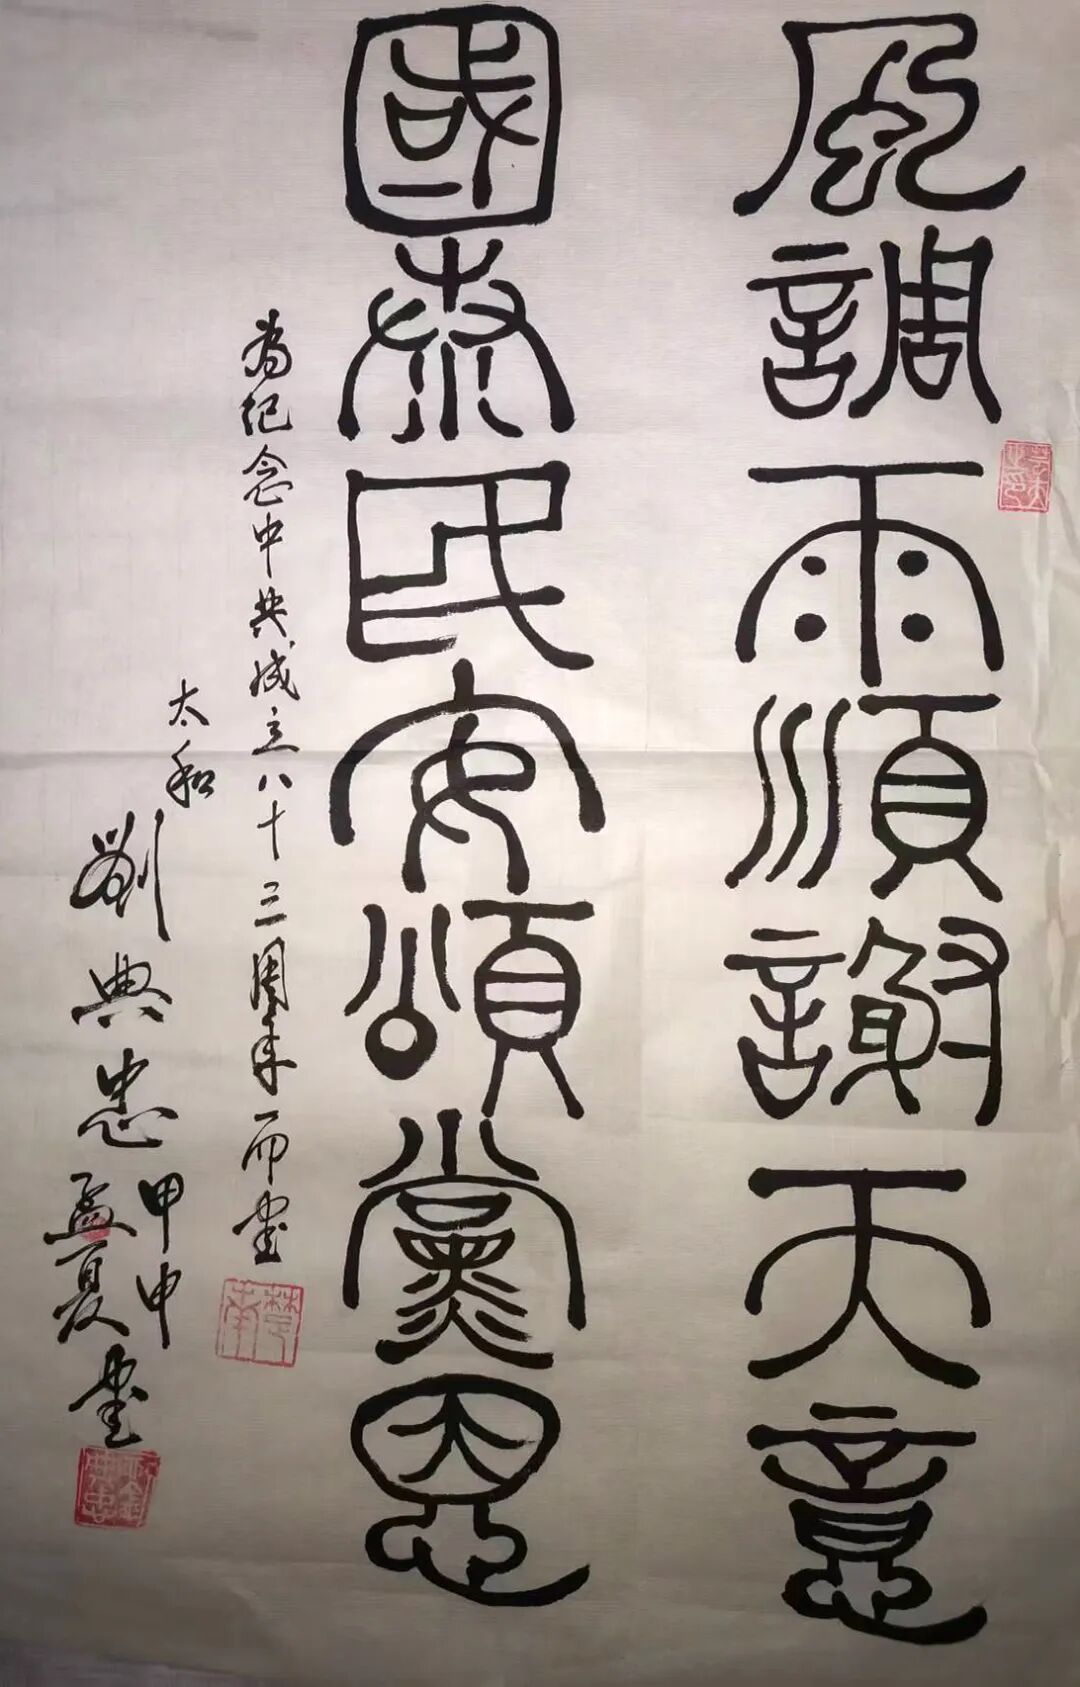 風調雨順謝天意
國泰民安頌黨恩
为纪念中共成立八十三周年而書
太和
劉典忠
甲申
孟夏書